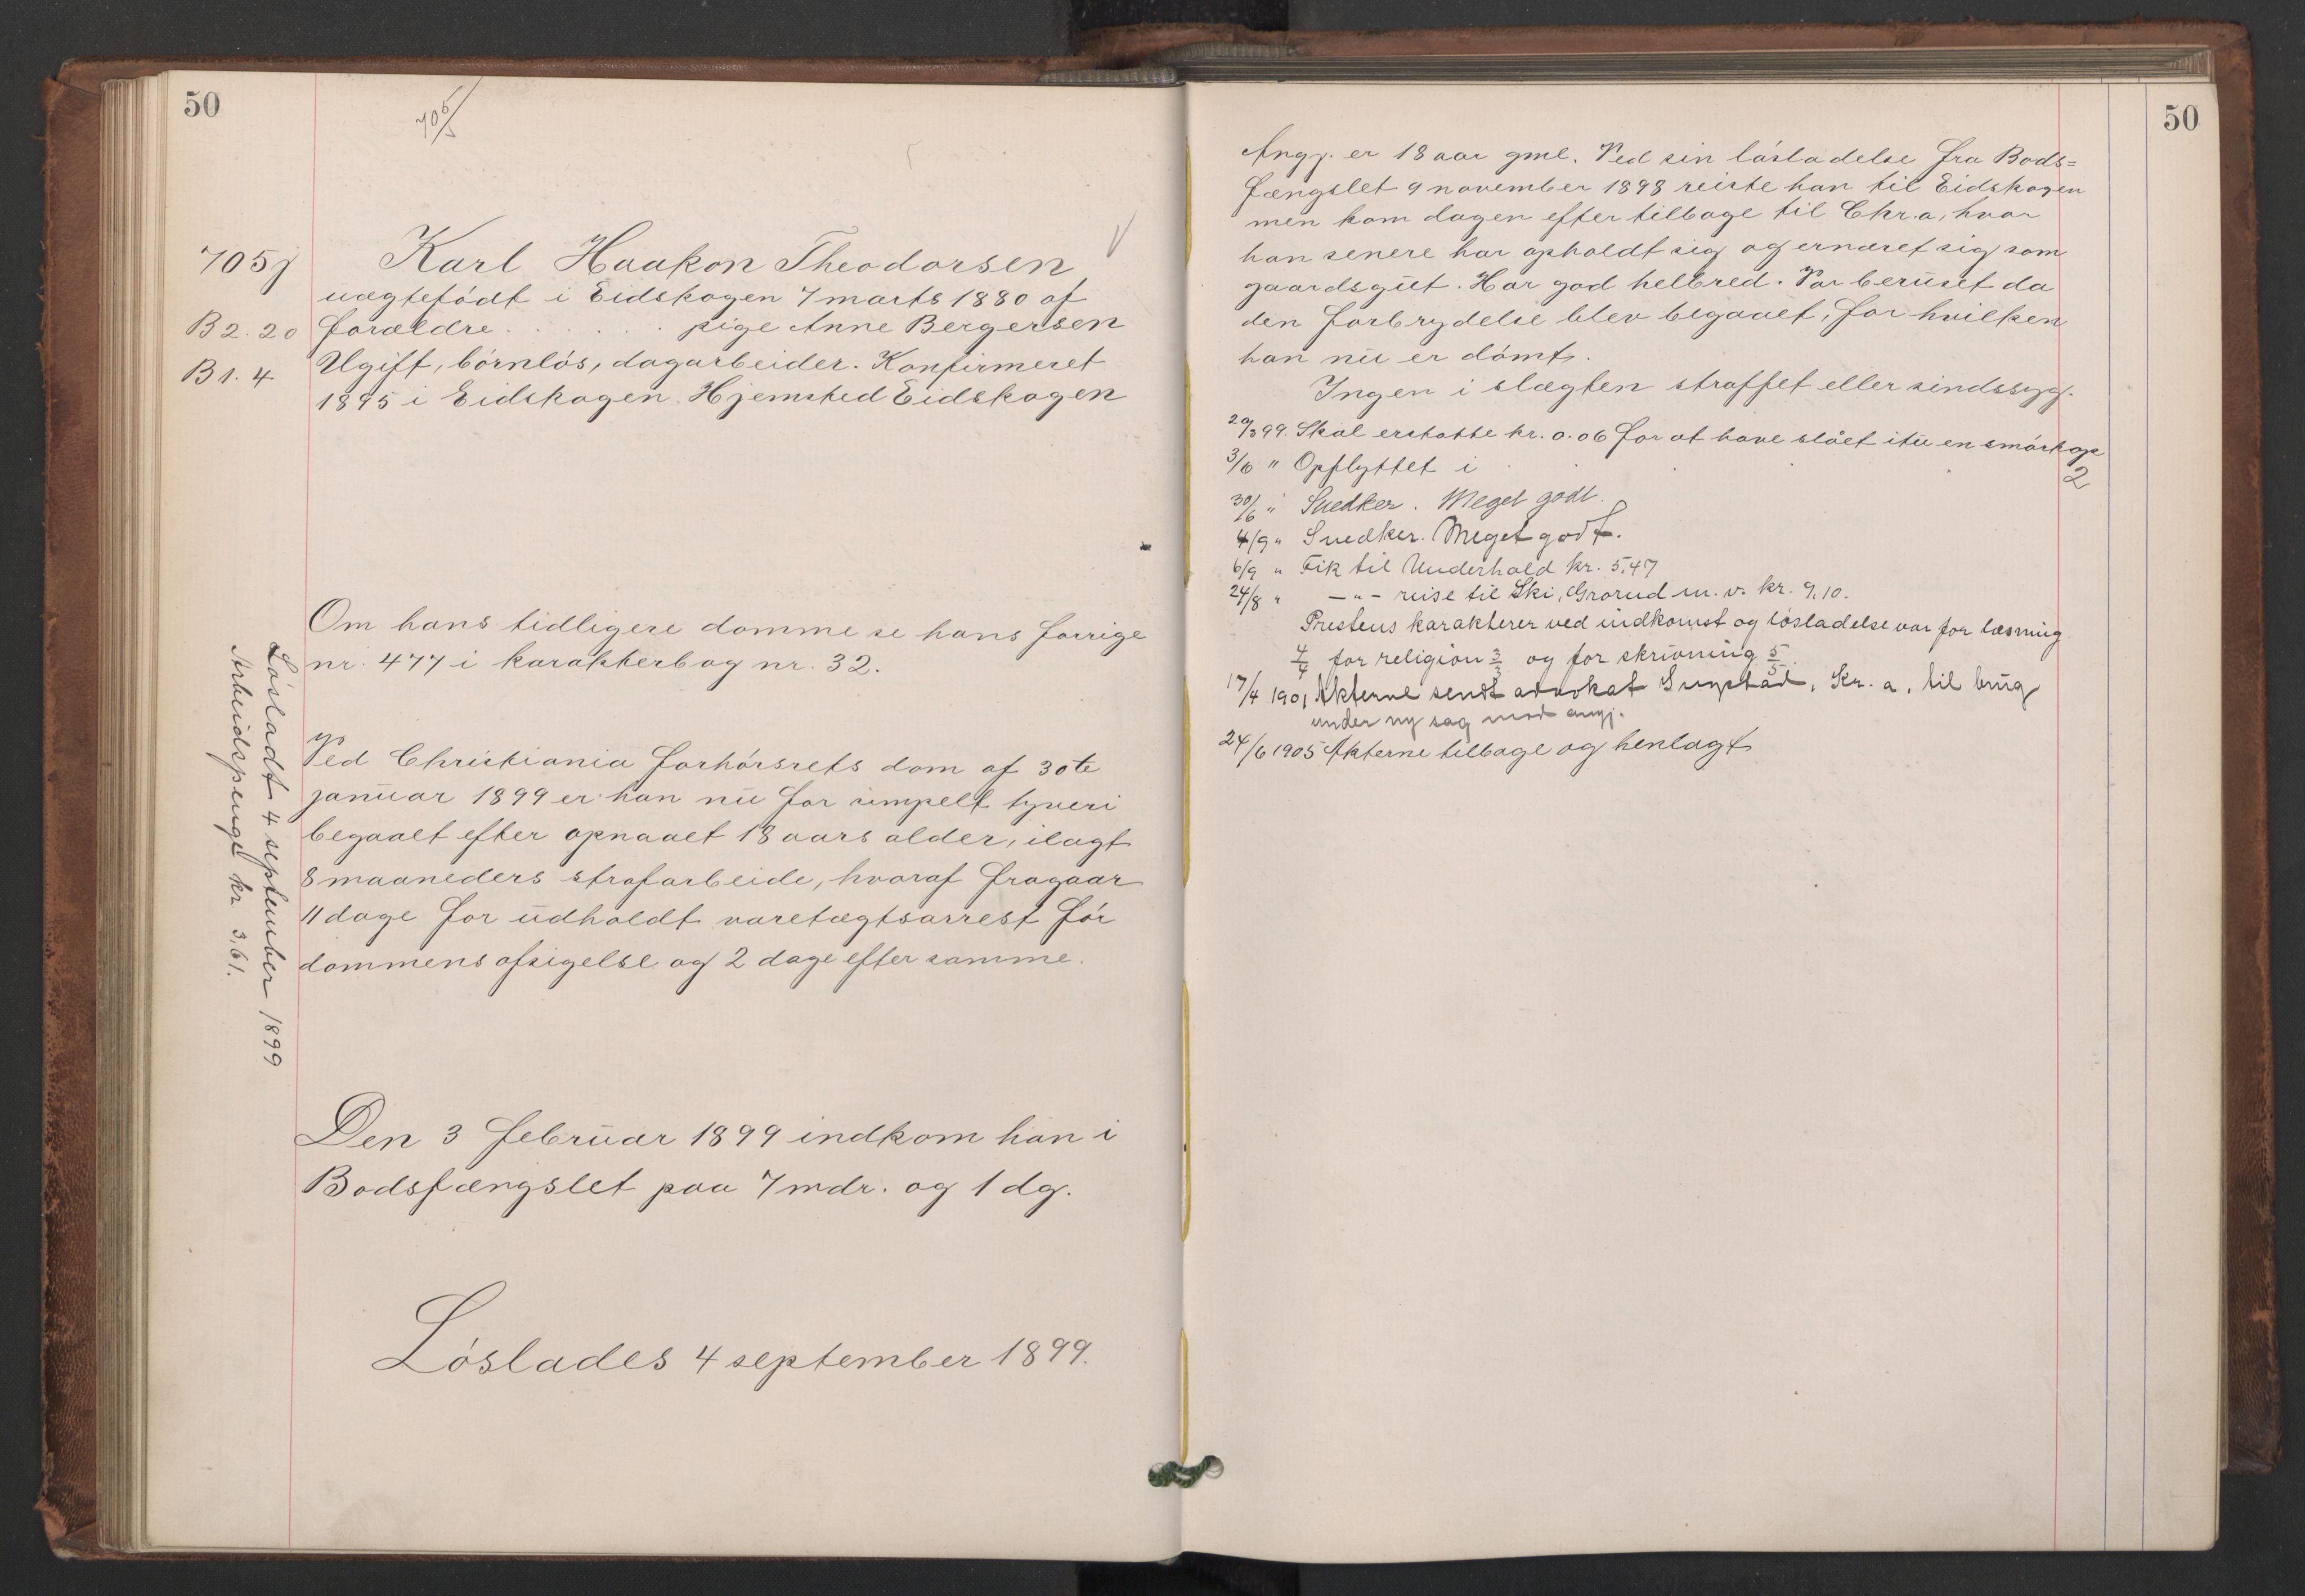 50
705/5
705j
Karl Haakon Theodorsen
uægtefödt i Eidskogen 7 marts 1880 af
B 2. 20 forældre . . . . . . pige Anne Bergersen
B 1. 4 Ugift, börnlös, dagarbeider. Konfirmeret
1895 i Eidskogen. Hjemsted Eidskogen
Om hans tidligere domme se hans forrige
nr. 477 i karakterbog nr. 32.
Ved Christiania forhörsrets dom af 30te
januar 1899 er han nu for simpelt tyveri
begaaet efter opnaaet 18 aars alder, ilagt
8 maaneders strafarbeide, hvoraf fragaar
11 dage for udholdt varetægtsarrest för
dommens afsigelse og 2 dage efter samme.
Lösladt 4 september 1899
Arbeidspenge kr 3,61.
Den 3 februar 1899 indkom han i
Bodsfængslet paa 7 mdr. og 1 dg.
Löslades 4 september 1899.
50
Angj. er 18 aar gml. Ved sin lösladelse fra Bods=
fængslet 9 november 1898 reiste han til Eidskogen
men kom dagen efter tilbage til Chr.a, hvor
han senere har opholdt sig og ernæret sig som
gaardsgut. Har god helbred. Var beruset da
den forbrydelse blev begaaet, for hvilken
han nu er dömt.
Ingen i slægten straffet eller sindssyg.
20/3 99. Skal erstatte kr. 0.06 for at have slået itu en smörkop
3/6 " Opflyttet i 2
30/6 " Snedker. Meget godt.
4/9 " Snedker. Meget godt.
6/9 " Fik til Underhold kr. 5,47
24/8 " -"- reise til Ski, Grorud m. v. kr. 9.10.
Prestens karakterer ved indkomst og lösladelse var for læsning
4/4 for religion 3/3 og for skrivning 5/5.
17/4 1901 Akterne sendt advokat Kr. a. til brug
under ny sag mod angj.
24/6 1905 Akterne tilbage og henlagt